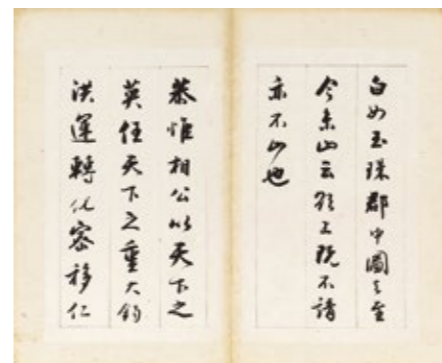 白如玉珠郡中國之至
今東山云既不請
亦不也
恭惟相公以天下之
英任天下之重大鈞
洪運轉化密移仁